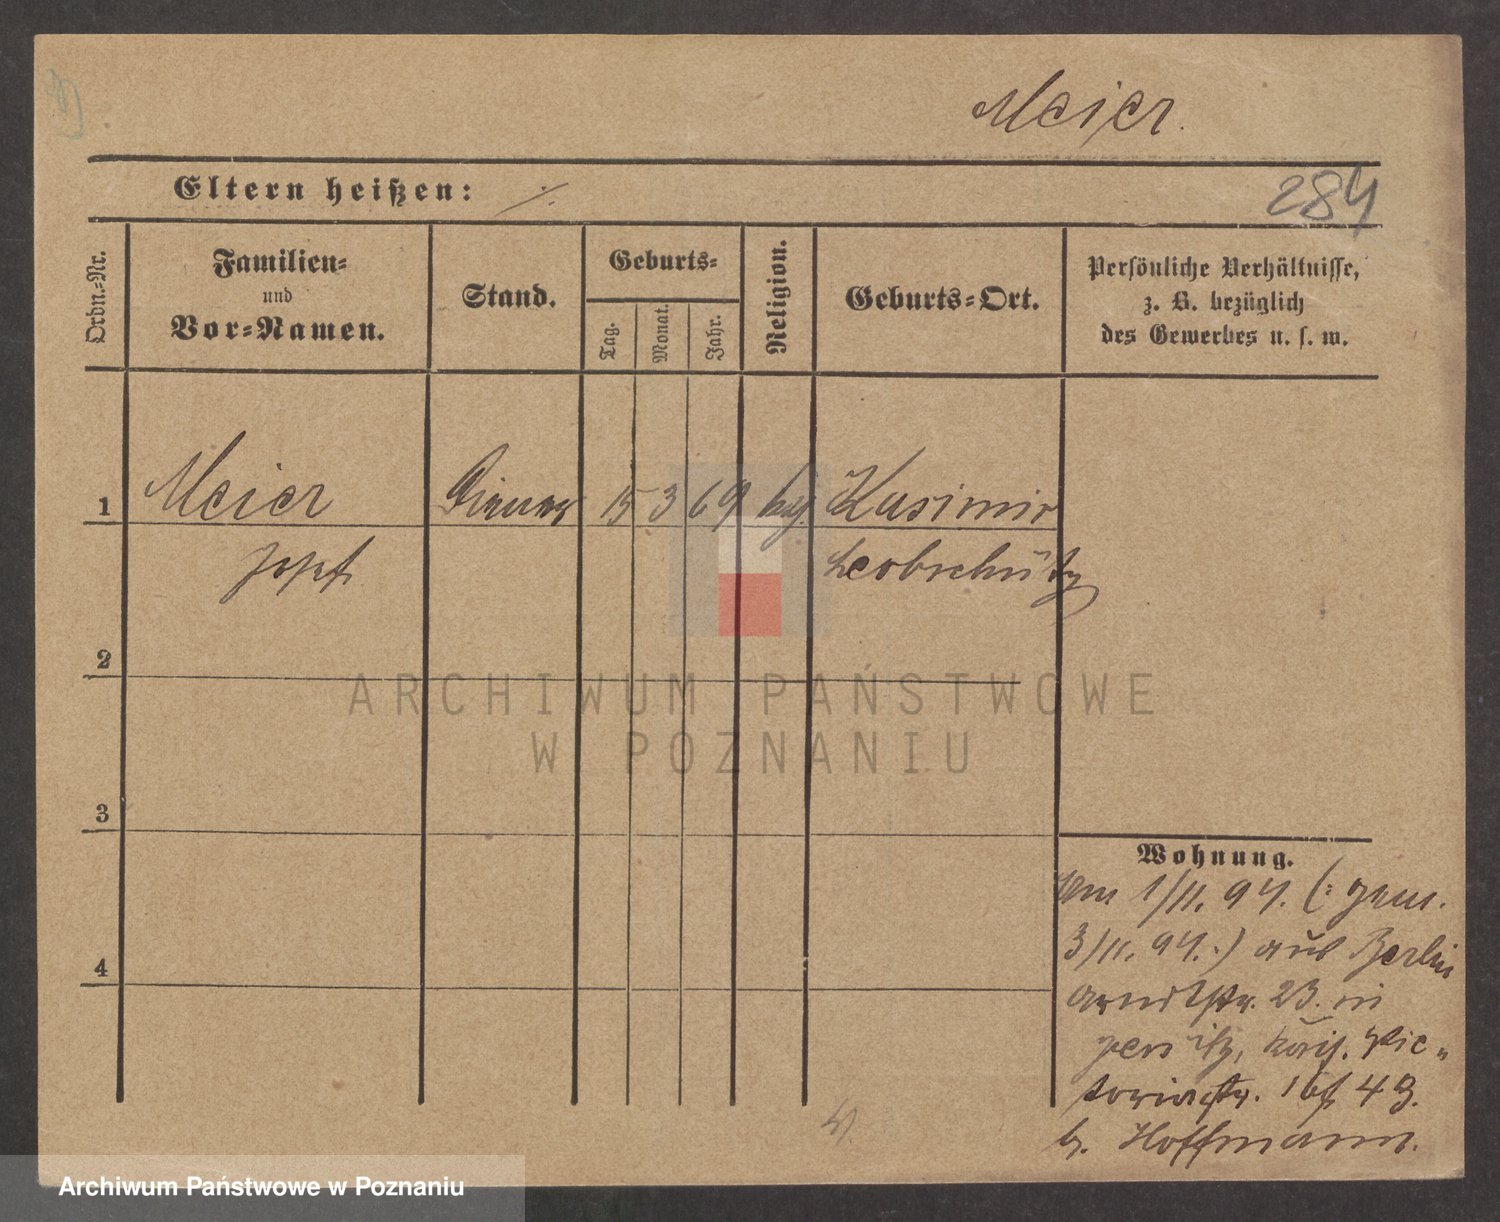 Meier.
Eltern heißen: ·/.
284
Ordn.-Nr.
Familien-
und
Vor-Namen.
Stand.
Geburts-
Tag.
Monat.
Jahr.
Religion.
Geburts-Ort.
Persönliche Verhältnisse,
z. B. bezüglich
des Gewerbes u. s. w.
1 Meier Diener 15 3 69 Kasimir
Josef Leobschütz
2
ARCHIWUM PAŃSTWOWE
W POZNANIU
3
4
Wohnung.
Am 1/11. 94. (: gem.
3/11. 94. :) aus Berlin
Arndtstr. 23. in
Jersitz, Kais. Vic-
toriastr. 4
b. Hoffmann.
Archiwum Państwowe w Poznaniu